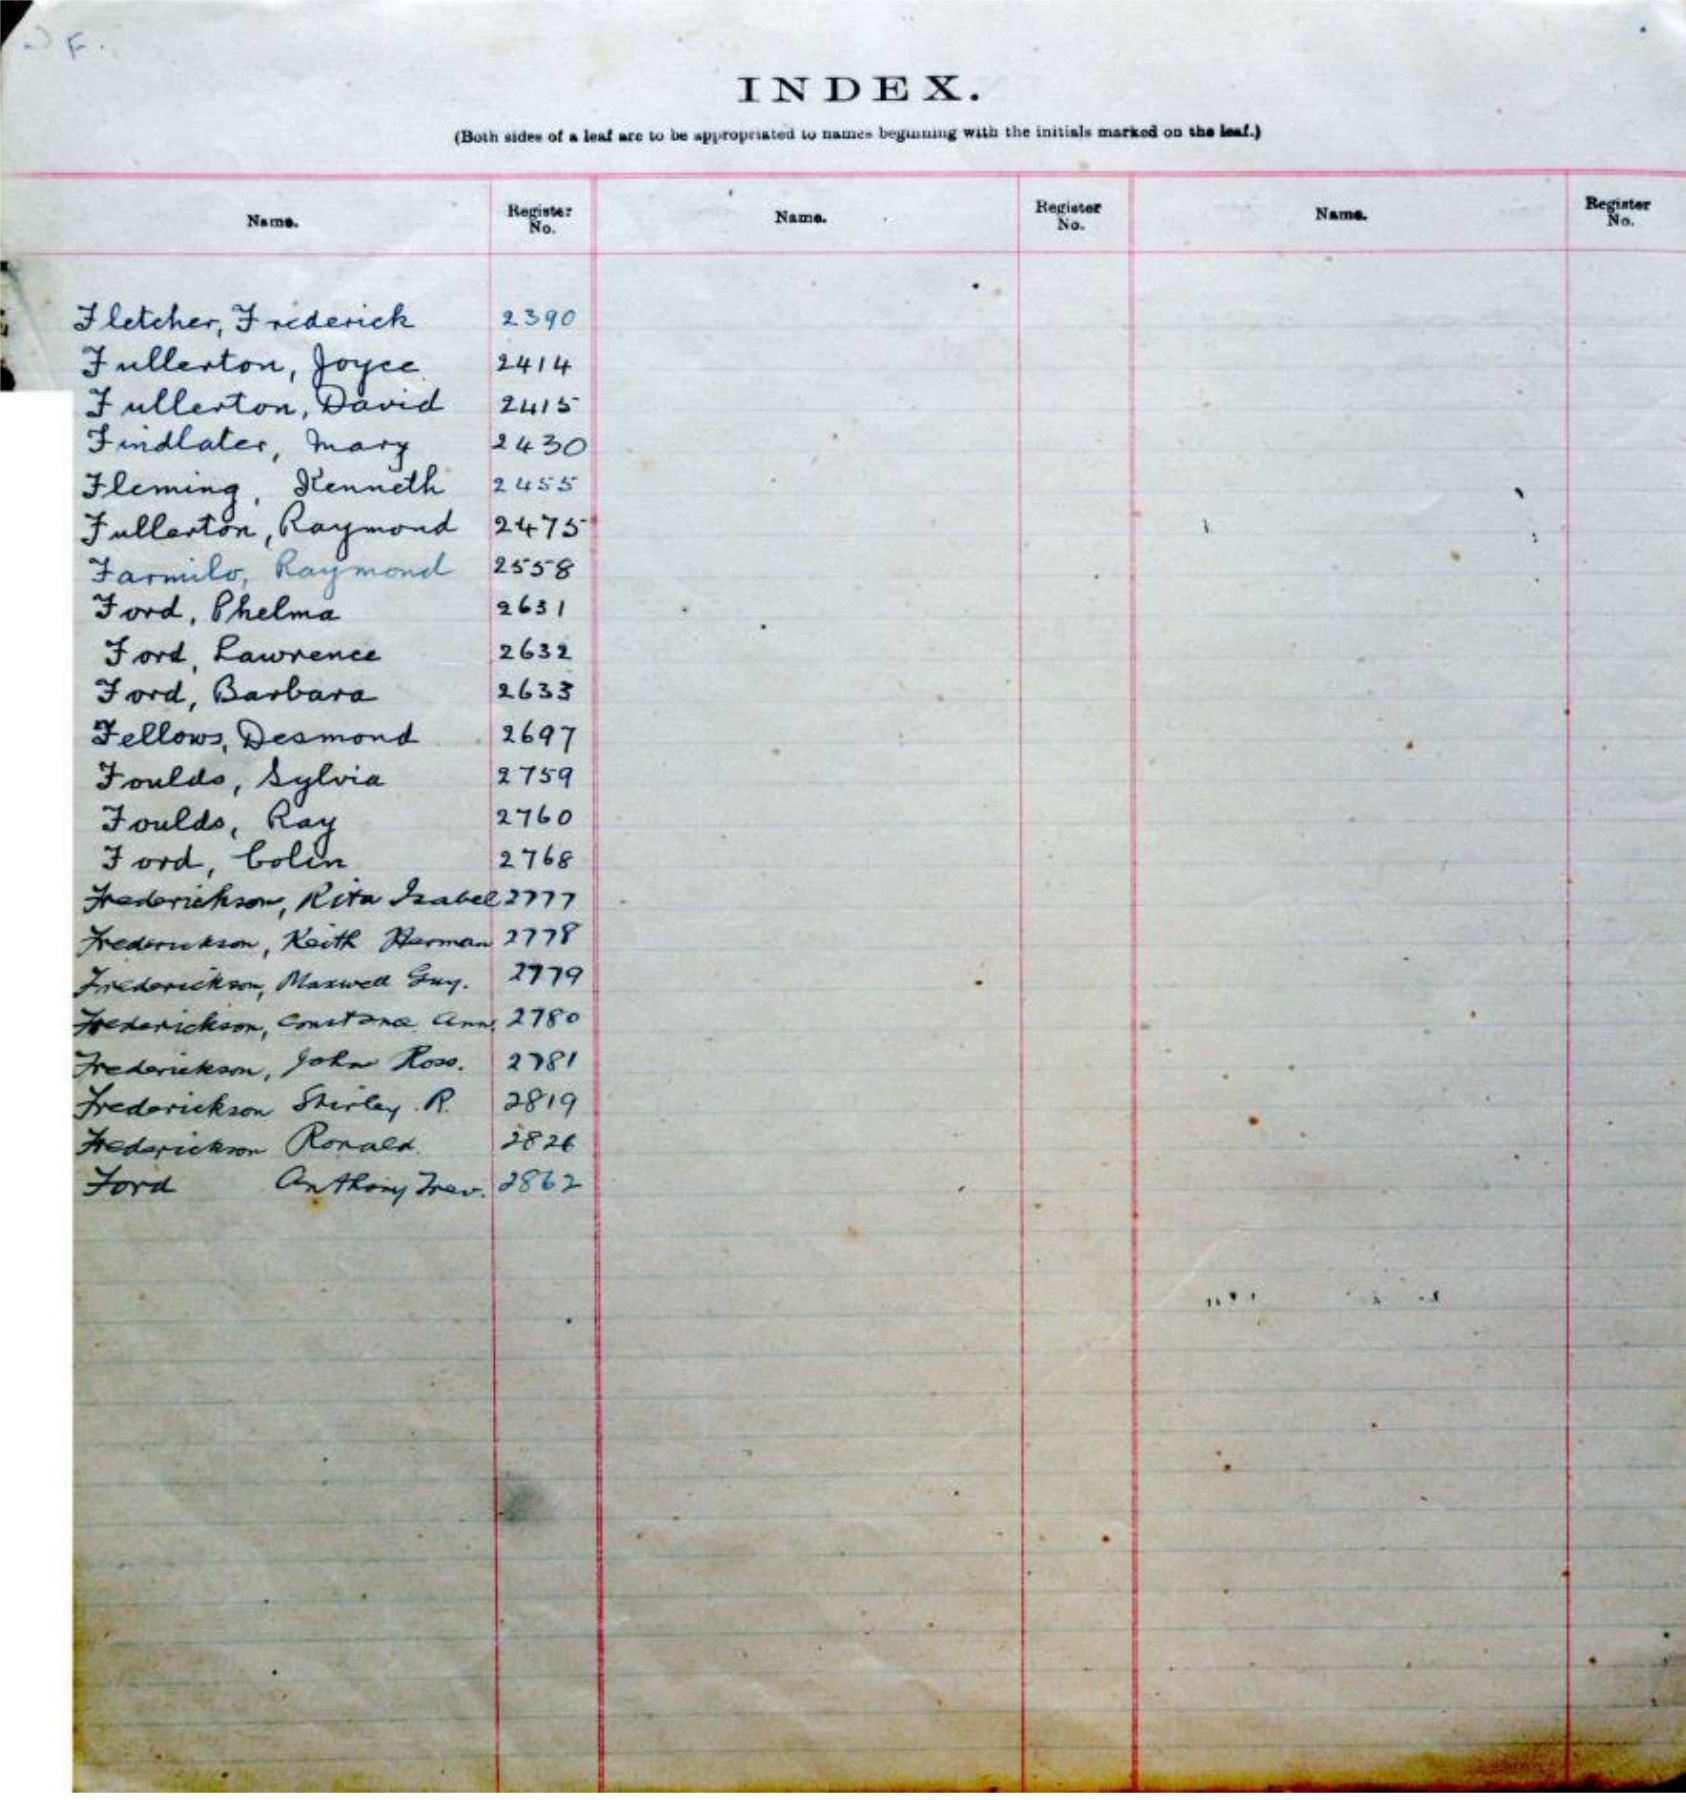 F.
INDEX.
(Both sides of a leaf are to be appropriated to names beginning with the initials marked on the leaf.)
Name. Register No. Name. Register No. Name. Register No.
Fletcher, Frederick 2390
Fullerton, Joyce 2414
Fullerton, David 2415
Findlater, Mary 2430
Fleming, Kenneth 2455
Fullerton, Raymond 2475
Farmilo, Raymond 2558
Ford, Phelma 2631
Ford, Lawrence 2632
Ford, Barbara 2633
Fellows, Desmond 2697
Foulds, Sylvia 2759
Foulds, Ray 2760
Ford, Colin 2768
Frederickson, Rita Isabel 2777
Frederickson, Keith Herman 2778
Frederickson, Maxwell Guy. 2779
Frederickson, Constance Ann 2780
Frederickson, John Ross. 2781
Frederickson Shirley R. 2819
Frederickson Ronald. 2826
Ford Anthony Trev. 2862